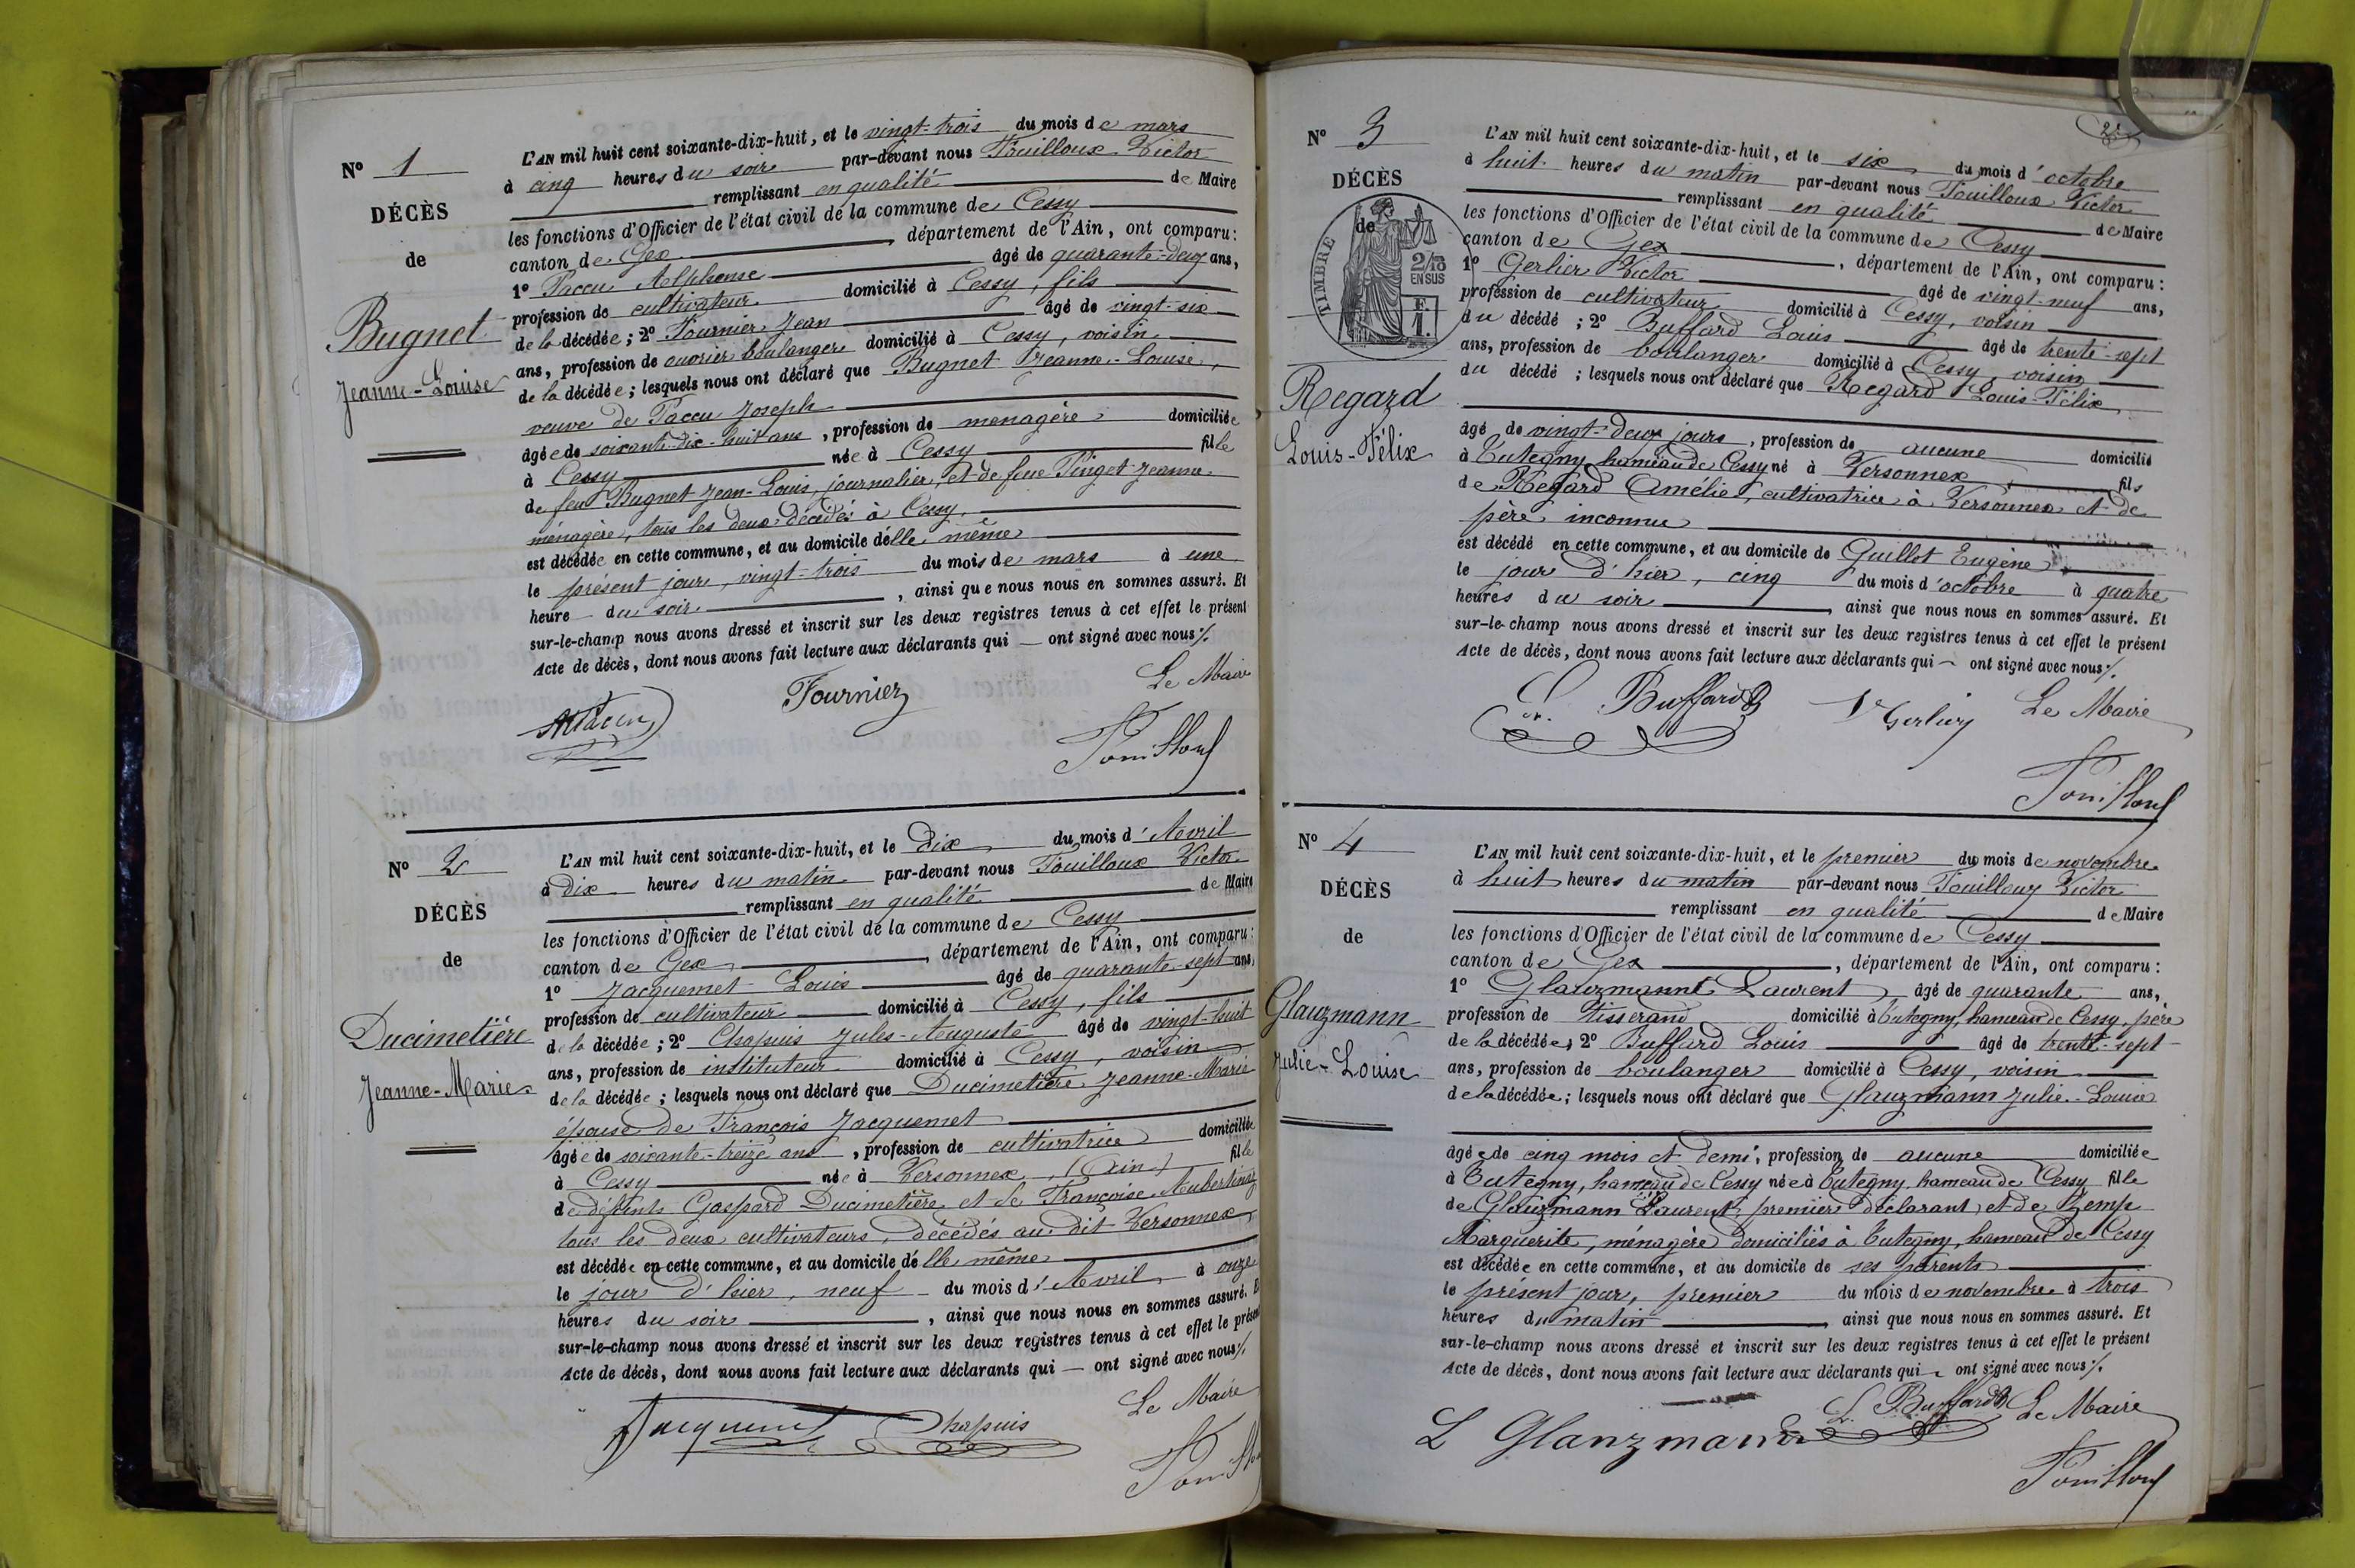 Nº 1
DÉCÈS
de
Bugnet
Jeanne-Louise
L'AN mil huit cent soixante-dix-huit, et le vingt-trois du mois de mars
à cinq heures du soir par-devant nous Fouilloux Victor
remplissant en qualité de Maire
les fonctions d'Officier de l'état civil de la commune de Cessy
canton de Gex, département de l'Ain, ont comparu:
1º Paccu Alphonse âgé de quarante-deux ans,
profession de cultivateur domicilié à Cessy, fils
de la décédée; 2º Fournier Jean âgé de vingt-six
ans, profession de ouvrier boulanger domicilié à Cessy, voisin
de la décédée; lesquels nous ont déclaré que Bugnet Jeanne-Louise,
veuve de Paccu Joseph
âgée de soixante-dix-huit ans, profession de menagère domiciliée
à Cessy née à Cessy fille
de feu Bugnet Jean-Louis, journalier, et de feue Pinget Jeanne
ménagère, tous les deux décédés à Cessy,
est décédée en cette commune, et au domicile d'elle même
le présent jour, vingt-trois du mois de mars à une
heure du soir, ainsi que nous nous en sommes assuré. Et
sur-le-champ nous avons dressé et inscrit sur les deux registres tenus à cet effet le présent
Acte de décès, dont nous avons fait lecture aux déclarants qui — ont signé avec nous ./.
Fournier
Le Maire
Fouilloux
Nº 2
DÉCÈS
de
Ducimetière
Jeanne-Marie
L'AN mil huit cent soixante-dix-huit, et le dix du mois d'Avril
à dix heures du matin par-devant nous Fouilloux Victor
remplissant en qualité de Maire
les fonctions d'Officier de l'état civil de la commune de Cessy
canton de Gex, département de l'Ain, ont comparu:
1º Jacquemet Louis âgé de quarante-sept ans,
profession de cultivateur domicilié à Cessy, fils
de la décédée; 2º Chapuis Jules-Auguste âgé de vingt-huit
ans, profession de instituteur domicilié à Cessy, voisin
de la décédée; lesquels nous ont déclaré que Ducimetière Jeanne-Marie
épouse de François Jacquemet
âgée de soixante-treize ans, profession de cultivatrice domiciliée
à Cessy née à Versonnex, (Ain) fille
de défunts Gaspard Ducimetière et de Françoise
tous les deux cultivateurs, décédés au dit Versonnex
est décédée en cette commune, et au domicile d'elle même
le jour d'hier, neuf du mois d'Avril à onze
heures du soir, ainsi que nous nous en sommes assuré. E
sur-le-champ nous avons dressé et inscrit sur les deux registres tenus à cet effet le présen
Acte de décès, dont nous avons fait lecture aux déclarants qui — ont signé avec nous ./.
Jacquemet Chapuis
Le Maire
Nº 3
DÉCÈS
de
TIMBRE
2/10
EN SUS
F.
1.
Regard
Louis-Félix
L'AN mil huit cent soixante-dix-huit, et le six du mois d'octobre
à huit heures du matin par-devant nous Fouilloux Victor
remplissant en qualité de Maire
les fonctions d'Officier de l'état civil de la commune de Cessy
canton de Gex, département de l'Ain, ont comparu:
1º Gerlier Victor âgé de vingt-neuf ans,
profession de cultivateur domicilié à Cessy, voisin
du décédé; 2º Buffard Louis âgé de trente-sept
ans, profession de boulanger domicilié à Cessy, voisin
du décédé; lesquels nous ont déclaré que Regard Louis-Félix
âgé de vingt-deux jours, profession de aucune domicilié
à Tutegny, hameau de Cessy né à Versonnex fils
de Regard Amélie, cultivatrice à Versonnex et de
père inconnu
est décédé en cette commune, et au domicile de Guillot Eugène
le jour d'hier, cinq du mois d'octobre à quatre
heures du soir, ainsi que nous nous en sommes assuré. Et
sur-le-champ nous avons dressé et inscrit sur les deux registres tenus à cet effet le présent
Acte de décès, dont nous avons fait lecture aux déclarants qui — ont signé avec nous ./.
L. Buffard V Gerlier Le Maire
Fouilloux
Nº 4
DÉCÈS
de
Glauzmann
Julie-Louise
L'AN mil huit cent soixante-dix-huit, et le premier du mois de novembre
à huit heures du matin par-devant nous Fouilloux Victor
remplissant en qualité de Maire
les fonctions d'Officier de l'état civil de la commune de Cessy
canton de Gex, département de l'Ain, ont comparu:
1º Glauzmann Laurent âgé de quarante ans,
profession de tisserand domicilié à Tutegny, hameau de Cessy, père
de la décédée; 2º Buffard Louis âgé de trente-sept
ans, profession de boulanger domicilié à Cessy, voisin
de la décédée; lesquels nous ont déclaré que Glauzmann Julie-Louise
âgée de cinq mois et demi, profession de aucune domiciliée
à Tutegny, hameau de Cessy née à Tutegny hameau de Cessy fille
de Glauzmann Laurent, premier déclarant, et de Zemp
Marguerite, ménagère domiciliés à Tutegny, hameau de Cessy
est décédée en cette commune, et au domicile de ses parents
le présent jour, premier du mois de novembre à trois
heures du matin, ainsi que nous nous en sommes assuré. Et
sur-le-champ nous avons dressé et inscrit sur les deux registres tenus à cet effet le présent
Acte de décès, dont nous avons fait lecture aux déclarants qui — ont signé avec nous ./.
L Glanzmann L. Buffard Le Maire
Fouilloux